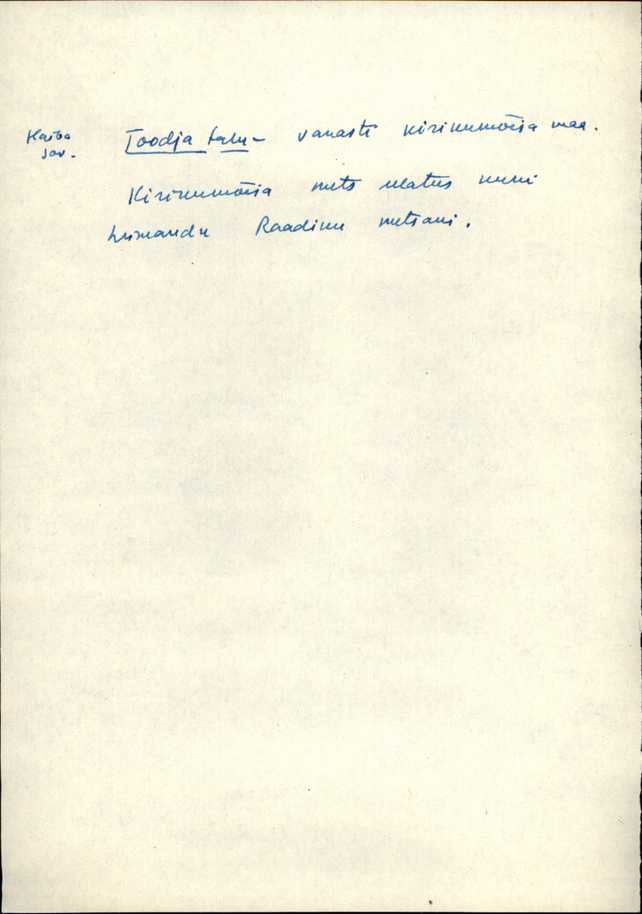 Haiba
jsv.
Toodja talu – vanasti kirikumõisa maa.
Kirikumõisa mets ulatus kuni
Lümandu Raadiku metsani.